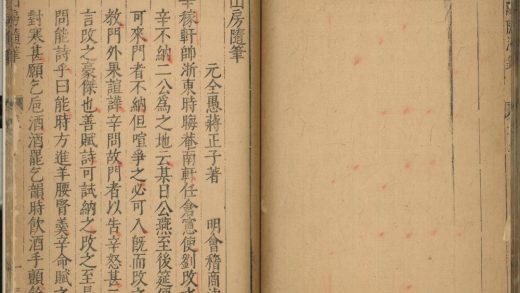 山房隨筆
元全愚蔣正子著 明會稽商
辛稼軒帥浙東時晦菴南軒任倉憲使劉改
辛不納二公為之地云某日公燕至後筵便
可來門者不納但喧爭之必可入旣而改之
教門外果諠譁辛問故門者以告辛怒甚
言改之豪傑也善賦詩可試納之改之至長
問能詩乎曰能時方進羊腰腎羹辛命賦之
對寒甚願乞巵酒酒罷乞韻時飲酒手顫
山房隨筆